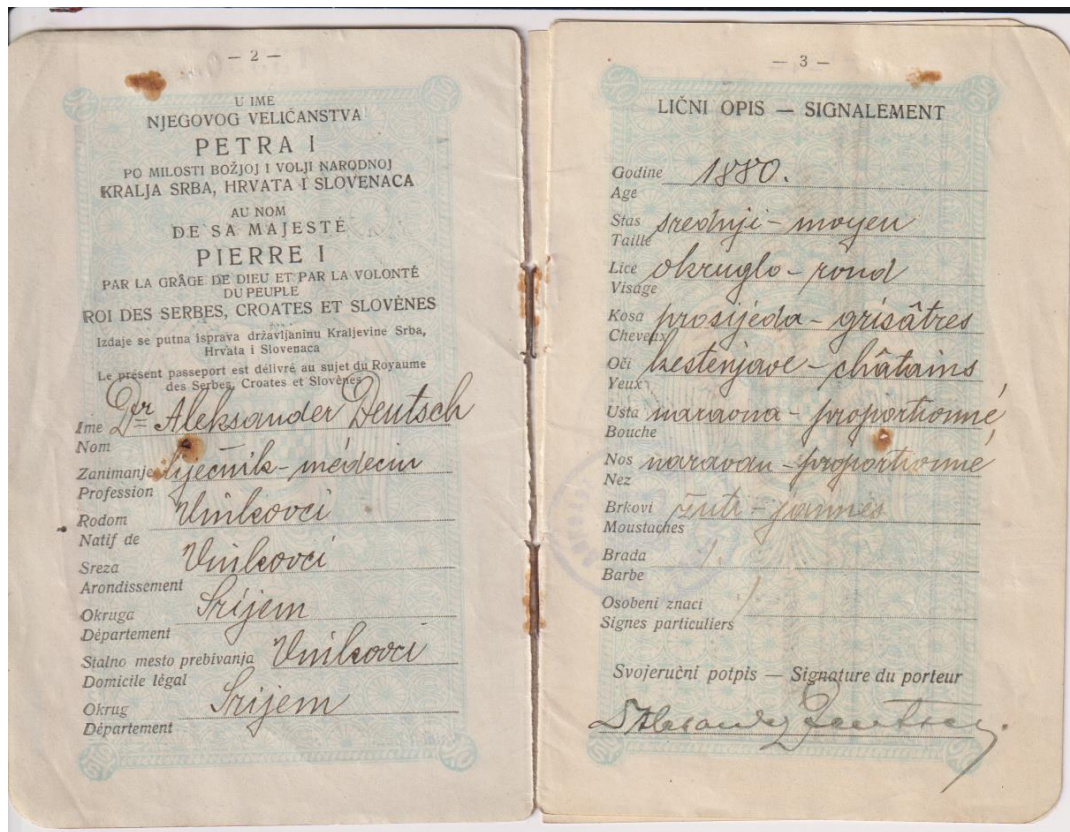 — 2 —
U IME
NJEGOVOG VELIČANSTVA
PETRA I
PO MILOSTI BOŽJOJ I VOLJI NARODNOJ
KRALJA SRBA, HRVATA I SLOVENACA
AU NOM
DE SA MAJESTÉ
PIERRE I
PAR LA GRÂGE DE DIEU ET PAR LA VOLONTÉ
DU PEUPLE
ROI DES SERBES, CROATES ET SLOVÈNES
Izdaje se putna isprava državljaninu Kraljevine Srba,
Hrvata i Slovenaca
Le présent passeport est délivré au sujet du Royaume
des Serbes, Croates et Slovènes
Ime Dr Aleksander Deutsch
Nom
Zanimanje liječnik - médecin
Profession
Rodom Vinkovci
Natif de
Sreza Vinkovci
Arondissement
Okruga Srijem
Département
Stalno mesto prebivanja Vinkovci
Domicile légal
Okrug Srijem
Département
— 3 —
LIČNI OPIS — SIGNALEMENT
Godine 1880.
Age
Stas srednji - moyen
Taille
Lice okruglo - rond
Visage
Kosa prosijeda - grisâtres
Cheveux
Oči kestenjave - châtains
Yeux
Usta naravna - proportionné
Bouche
Nos naravan - proportionné
Nez
Brkovi žuti - jaunes
Moustaches
Brada /.
Barbe
Osobeni znaci /
Signes particuliers
Svojeručni potpis — Signature du porteur
Dr Aleksander Deutsch.